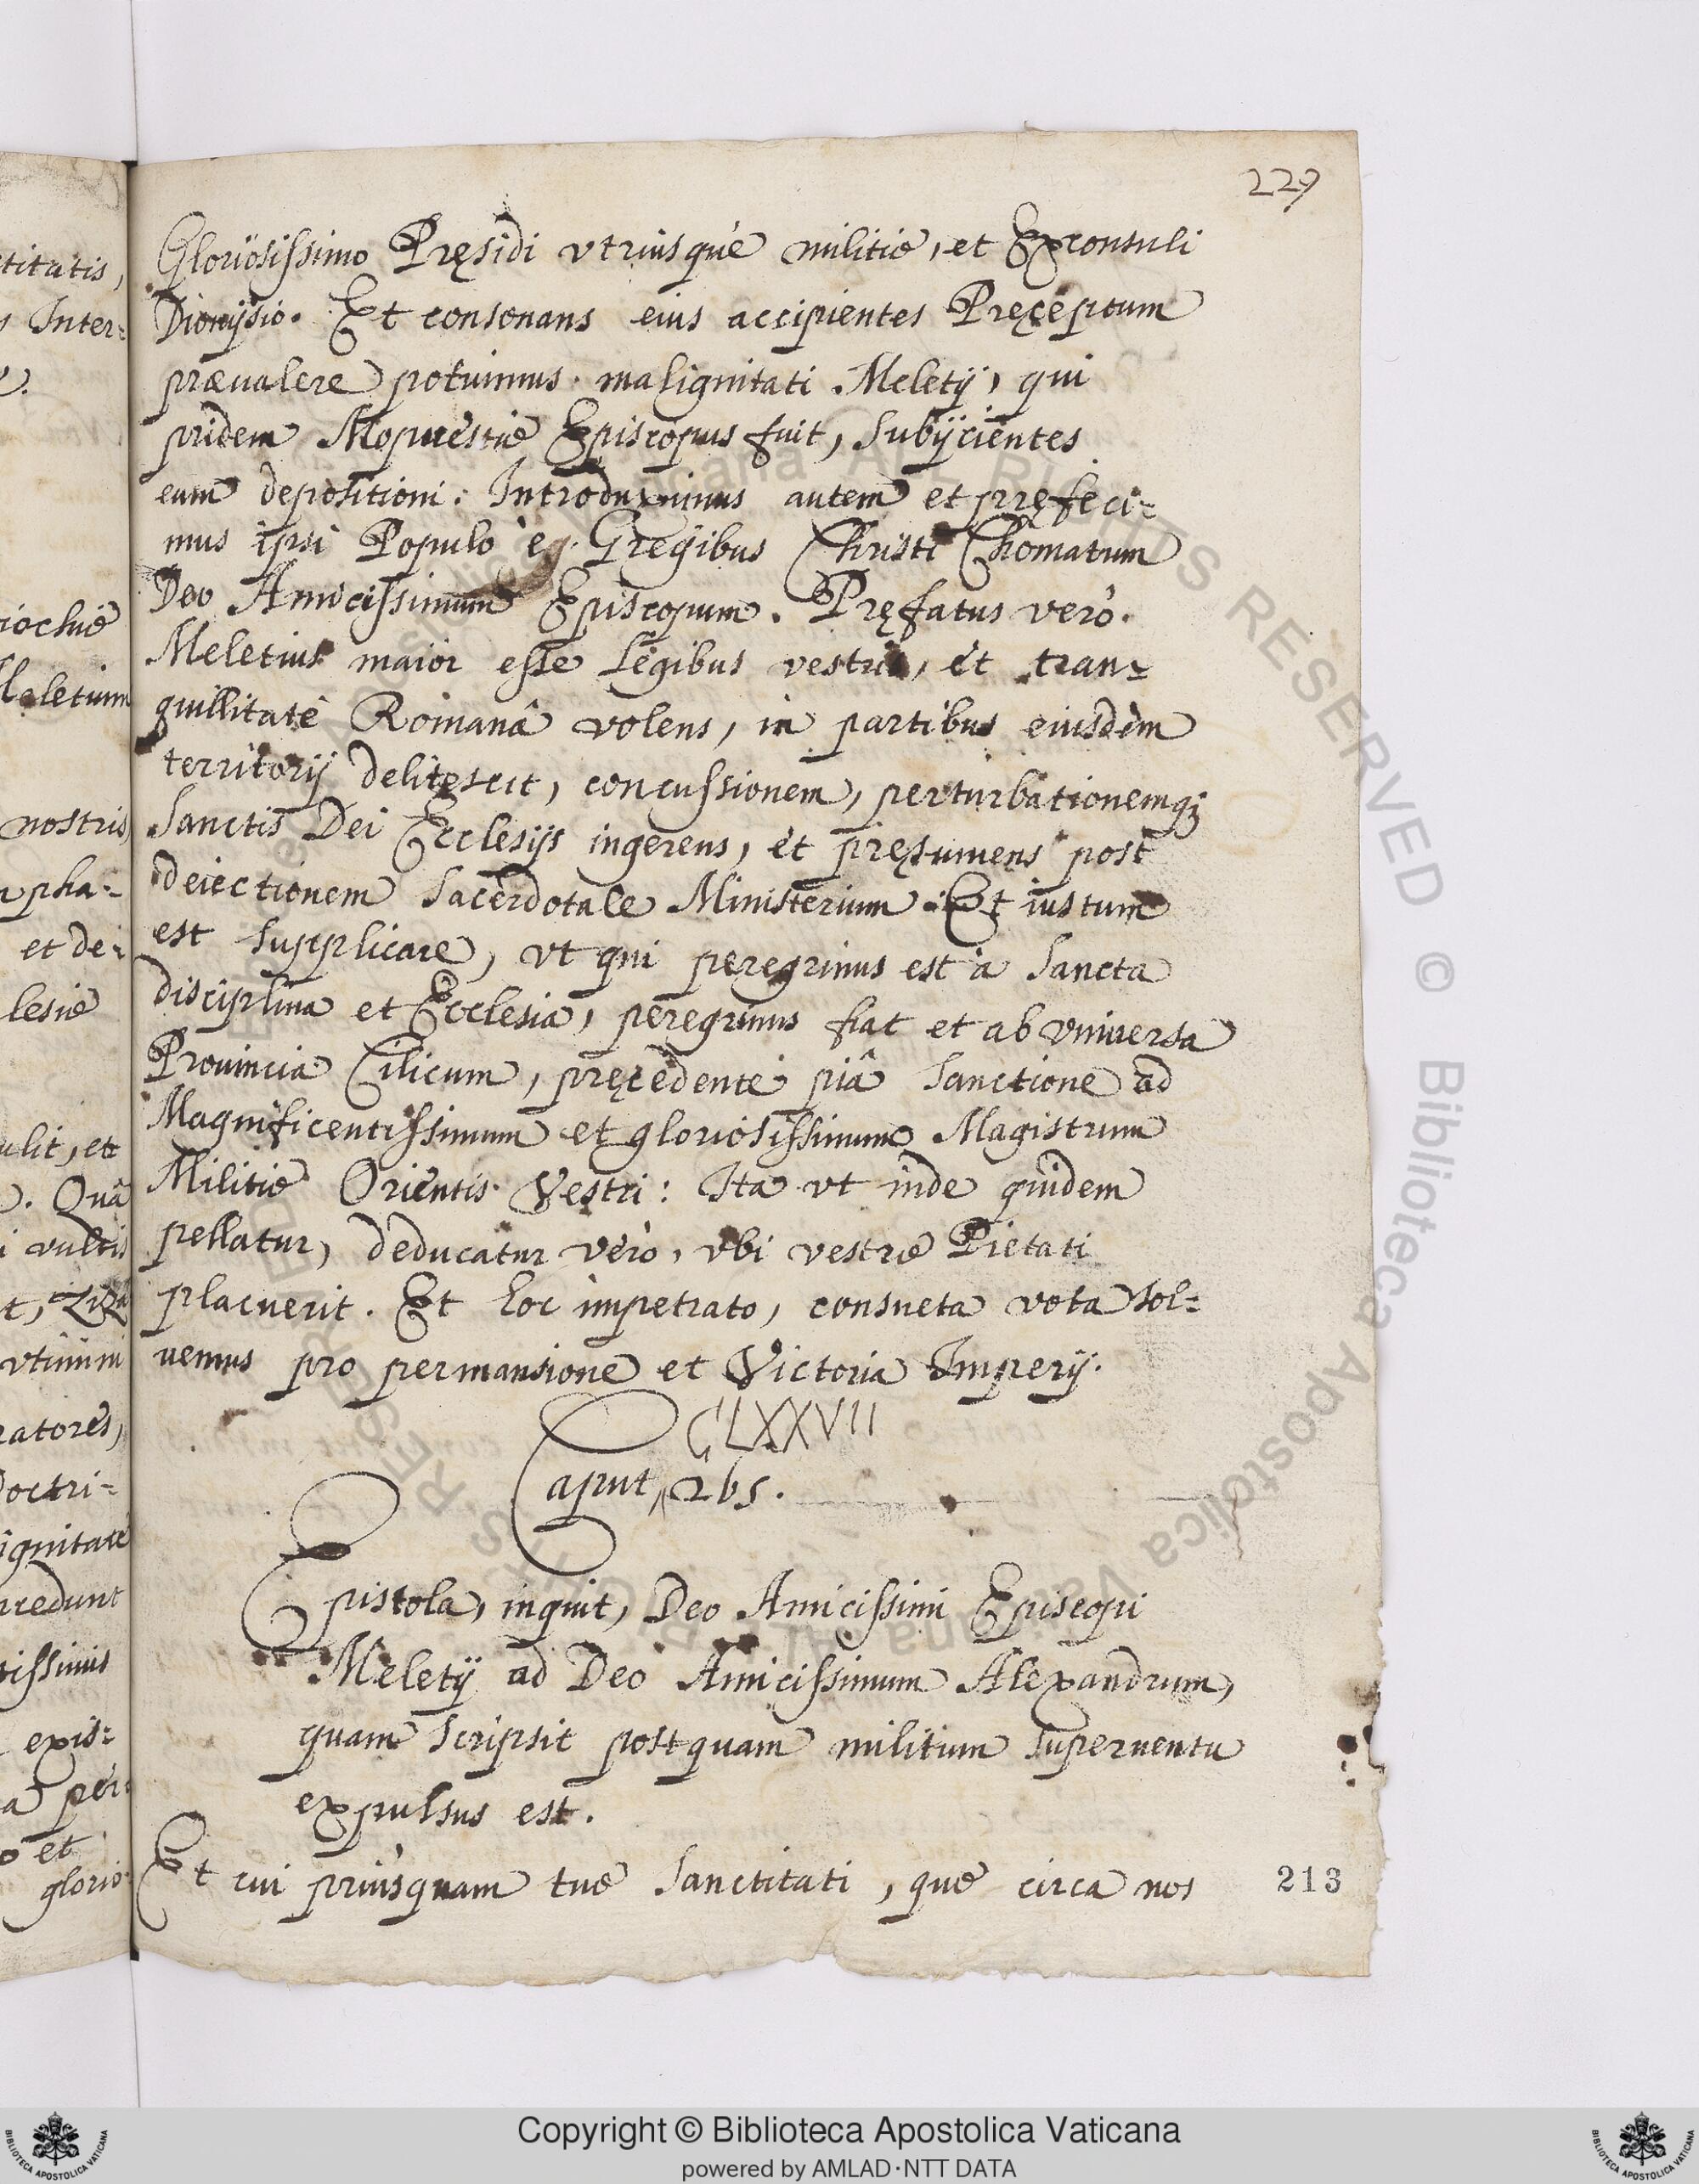 229
Gloriosissimo Pręsidi vtriusque militię, et Exconsuli
Dionysio. Et consonans eius accipientes Pręceptum
præualere potuimus malignitati Meletij, qui
pridem Mopuestię Episcopus fuit, subijcientes
eum depositioni. Introduximus autem et pręfeci-
mus ipsi Populo Gregibus Christi Chomatum
Deo Amicissimum Episcopum. Pręfatus verò
Meletius maior esse Legibus vestris, et tran-
quillitate Romanâ volens, in partibus eiusdem
territorij delitescit, concussionem, perturbationemq;
Sanctis Dei Ecclesijs ingerens, et pręsumens post
deiectionem Sacerdotale Ministerium. Et iustum
est supplicare, vt qui peregrinus est à Sancta
disciplina et Ecclesia, peregrinus fiat et ab vniuersa
Prouincia Cilicum, pręcedente piâ Sanctione ad
Magnificentissimum et gloriosissimum Magistrum
Militię Orientis Vestri: Ita vt inde quidem
pellatur, deducatur verò, vbi vestrę Pietati
placuerit. Et hoc impetrato, consueta vota sol-
uemus pro permansione et Victoria Imperij.
CLXXVII
Caput 265.
Epistola, inquit, Deo Amicissimi Episcopi
Meletij ad Deo Amicissimum Alexandrum,
quam scripsit postquam militum superuentu
expulsus est.
Et cui priusquam tuę Sanctitati, quę circa nos
213
titatis,
Inter-
nostris
et de-
lesię
et
Quâ
vultis
vtimini
ratores,
Doctri-
ignitate
redunt
tissimis
exis-
et
glorio-
Copyright © Biblioteca Apostolica Vaticana
powered by AMLAD·NTT DATA